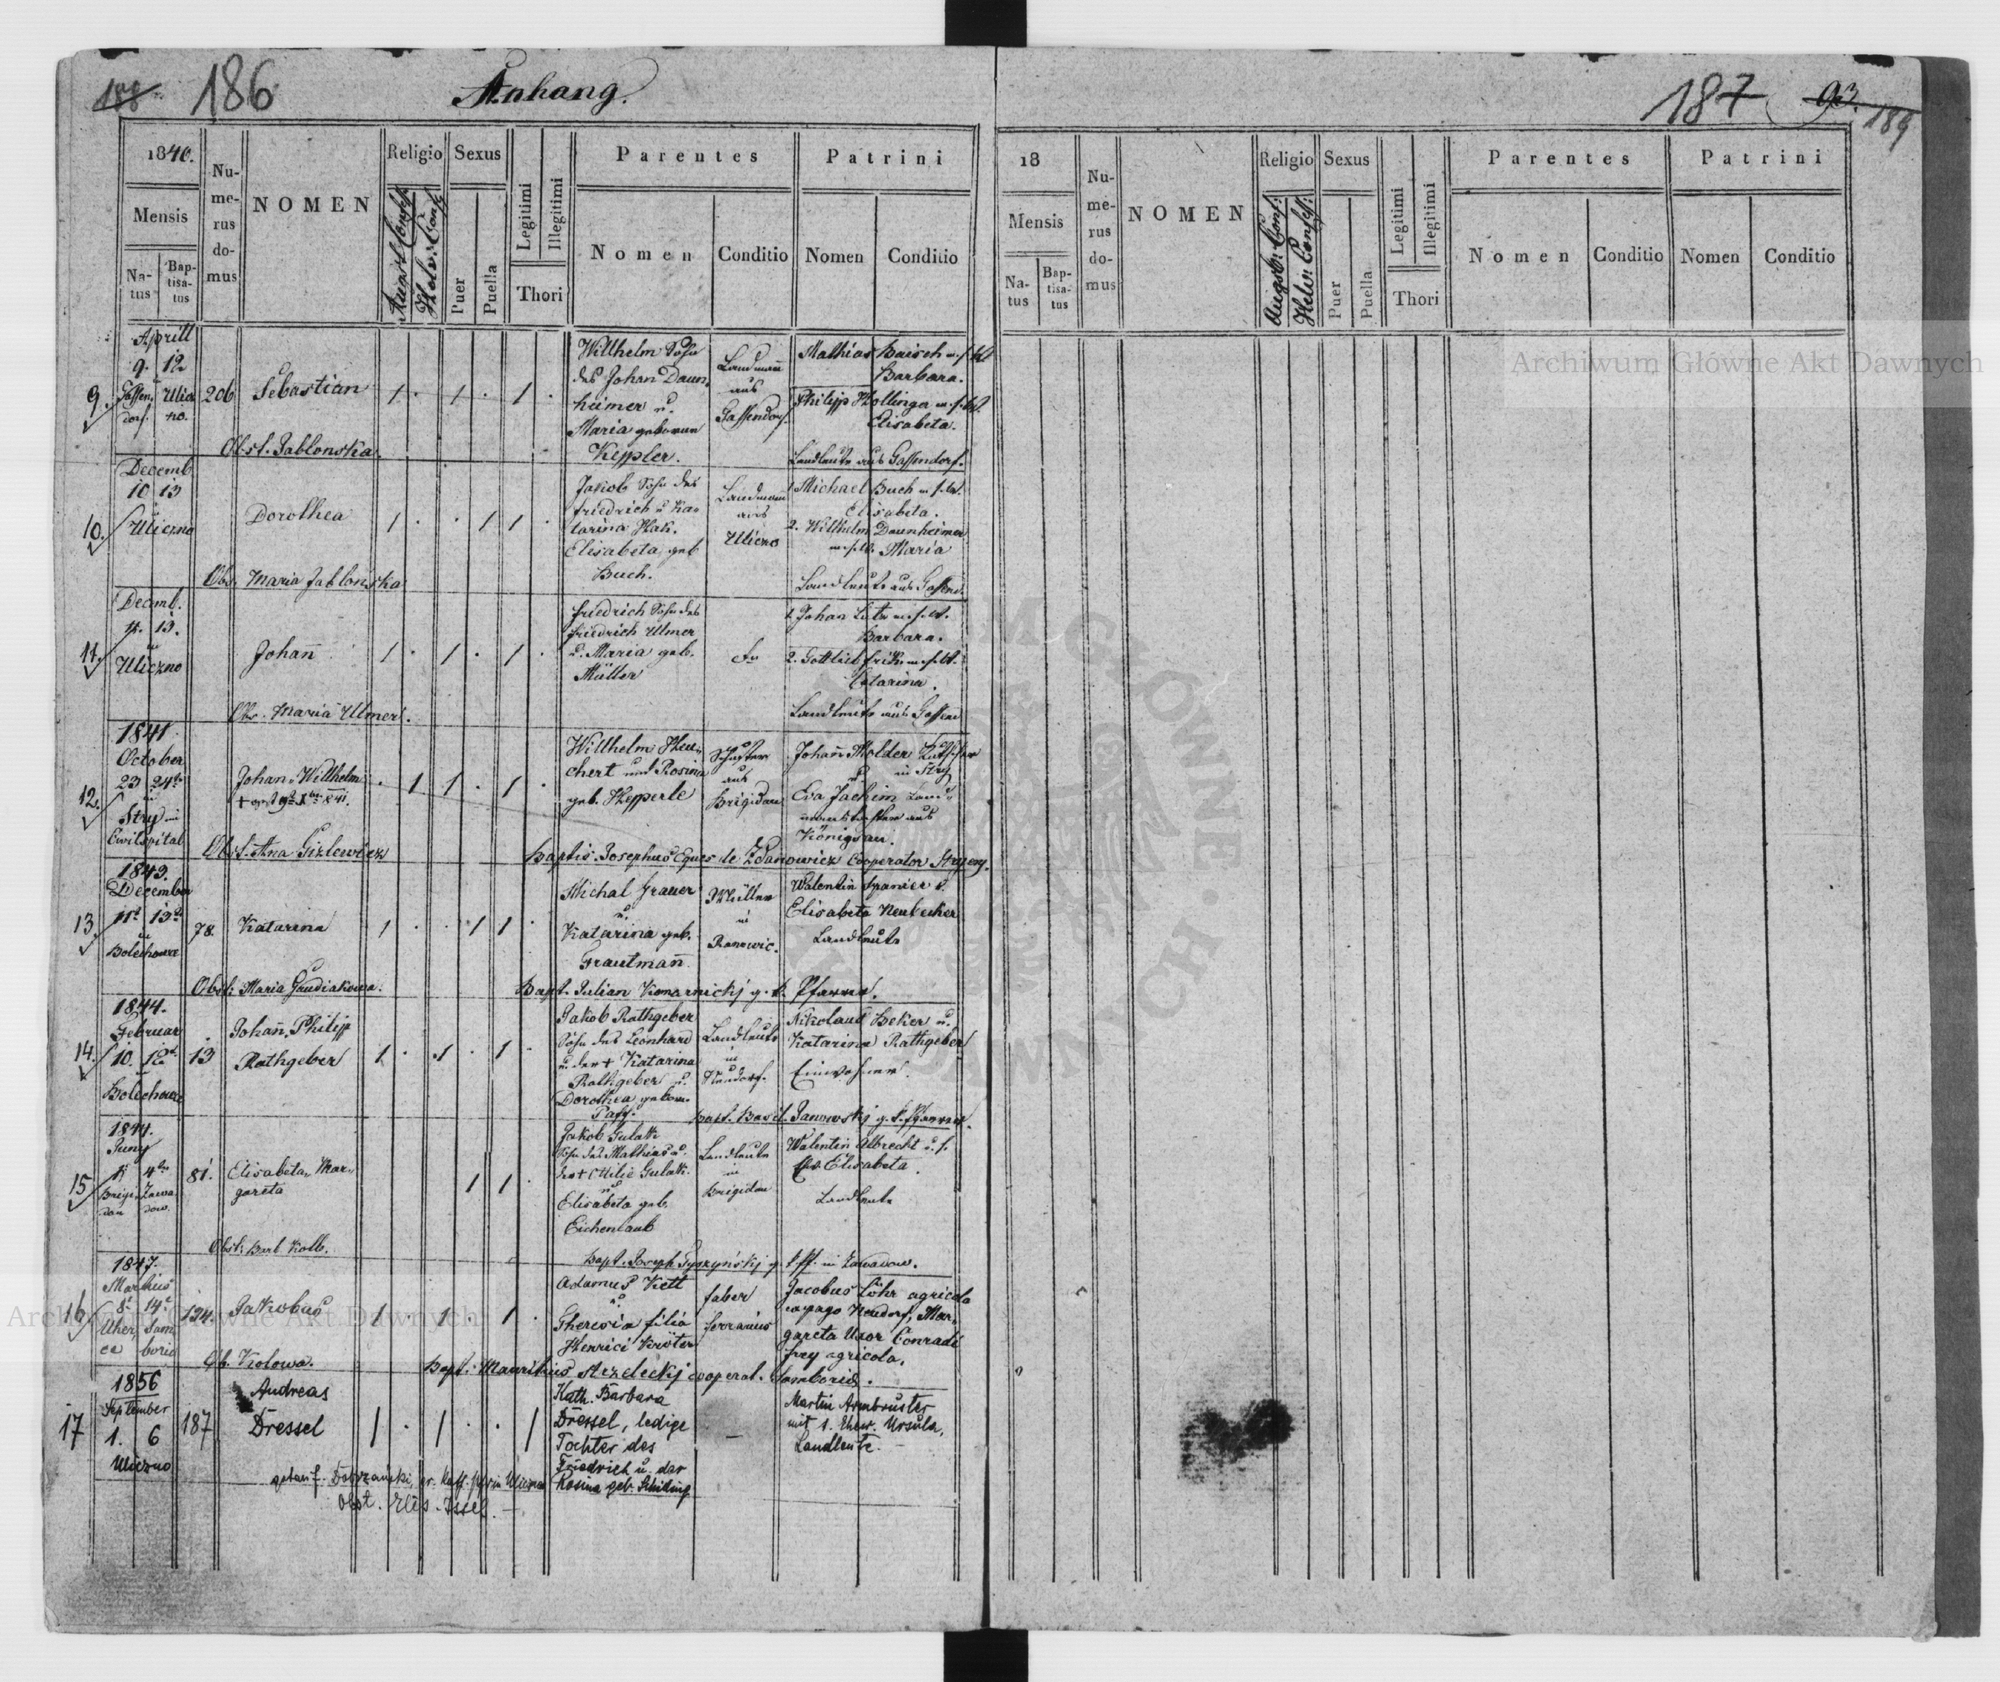 186
Anhang.
1840.
Mensis
Natus
Baptisatus
Numerus domus
NOMEN
Religio
Helv. Conf.
Sexus
Puer
Puella
Legitimi
Illegitimi
Thori
Parentes
Nomen
Conditio
Patrini
Nomen
Conditio
Aprill
9. 12
Gassendorf. Uliczno.
9.
206
Sebastian
1 . 1 . 1 .
Willhelm Sohn
des Johan Daun-
heimer u.
Maria geborene
Keppler.
Landmañ
aus
Gassendorf.
Mathias Baisch m. s. W.
Barbara.
Philipp Hollinger m. s. W.
Elisabeta.
Landleute aus Gassendorf.
Obst. Jablonska.
Decemb
10 13
Uliczno
10.
Dorothea
1 . . 1 1 .
Jakob Sohn des
Friedrich u Ka-
tarina
Elisabeta geb
Buch.
Landmann
aus
Uliczno
1. Michael Buch m. s. W.
Elisabeta.
2. Willhelm Daunheimer
m. s. W. Maria
Landleute aus Gassend.
Obs. Maria Jablonska
Decemb.
11. 13.
in
Uliczno
11.
Johañ
1 . 1 . 1 .
Friedrich Sohn des
Friedrich Ulmer
u. Maria geb.
Müller
1. Johan Lutz m. s. W.
Barbara.
2. Gottlieb m. s. W.
Catarina.
Landleute aus Gassen
Obs. Maria Ulmer.
1841.
October
23 24
in
Stry im
Civilspital
12.
Johan Willhelm
. 1 1 . 1 .
Willhelm
chert und Rosina
geb. Hepperle
aus
Brigidau
Johañ Molder Kutscher
in Stry
u.
Eva Jachim
aus
Königsau.
Obst. Ana Gizlewicz
Baptis. Josephus Eques de Zdanowicz Cooperator Stryens.
1843.
December
11t 13t
in
Bolechowce
13.
78.
Katarina
1 . . 1 1 .
Michal Grauer
u.
Katarina geb.
Trautmañ
Müller
in
Ranowic.
Walentin Spanier u.
Elisabeta Neubecker
Landleute
Obst: Maria Grudiakowa.
Bapt. Julian Komarnickj g. k. Pfarrer.
1844.
Februar
10. 12t
in
Bolechowce
14.
13
Johañ Philipp
Rathgeber
1 . 1 . 1 .
Jakob Rathgeber
Sohn des Leonhard
u. der + Katarina
Rathgeber u.
Dorothea geborn.
Paff.
Landleute
in
Neudorf.
Nikolaus Beker u.
Katarina Rathgeber
Einwohner.
bapt. Basil. Janowskj g. k. Pfarrer.
1844.
Juny
4ten
Brigidau Zawadow.
15
81.
Elisabeta Mar-
gareta
1 1 .
Jakob Gulath
Sohn des Mathias u.
der + Otilie Gulath
u.
Elisabeta geb.
Eichenlaub
Landleute
in
Brigidau
Walentin Albrecht u. s.
Elisabeta.
Landleute
Obst: Barb. Kolb.
1847.
Martius
8t 14t
Uherce Samborie
16
124.
Jakobus
1 1 1 .
Adamus Kett
u.
Theresia filia
Henrici Kröter
faber
ferrarius
Jacobus Löhr agricola
ex pago Neudorf, Mar-
gareta Uxor Conradi
Frey agricola.
Ob. Kolowa.
Bapt. Mauritius cooperat. Samborien.
1856
September
1. 6
Uliczno
17
187
Andreas
Dressel
1 . 1 . . 1
Kath. Barbara
Dressel, ledige
Tochter des
Friedrich u. der
Rosina geb. Scheiding
—
Martin Armbruster
mit s. Ehew. Ursula,
Landleute.
getauf. Dobrzański, Uliczno
Obst. Elis. Issel. —
187
93.
189
18
Mensis
Natus
Baptisatus
Numerus domus
NOMEN
Religio
Augsb: Conf:
Helv: Confess:
Sexus
Puer
Puella
Legitimi
Illegitimi
Thori
Parentes
Nomen
Conditio
Patrini
Nomen
Conditio
Archiwum Główne Akt Dawnych
Archiwum Główne Akt Dawnych